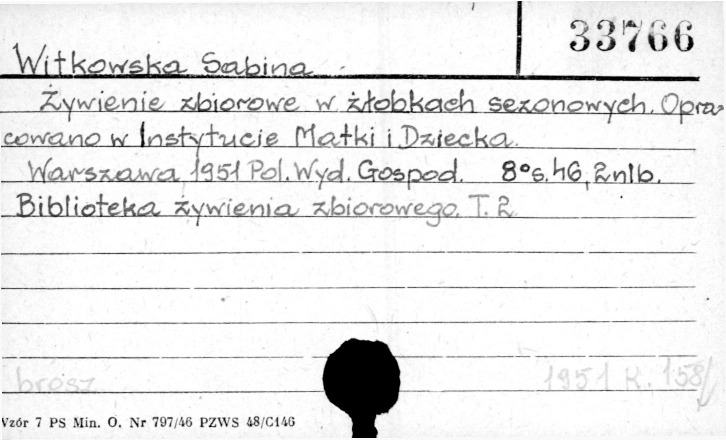 33766
Witkowska Sabina
Żywienie zbiorowe w żłobkach sezonowych. Opra-
cowano w Instytucie Matki i Dziecka.
Warszawa, 1951 Pol. Wyd. Gospod. 8° s. 46, 2 nlb.
Biblioteka żywienia zbiorowego. T. 2
brosz.
1951 K. 158/
Wzór 7 PS Min. O. Nr 797/46 PZWS 48/C146